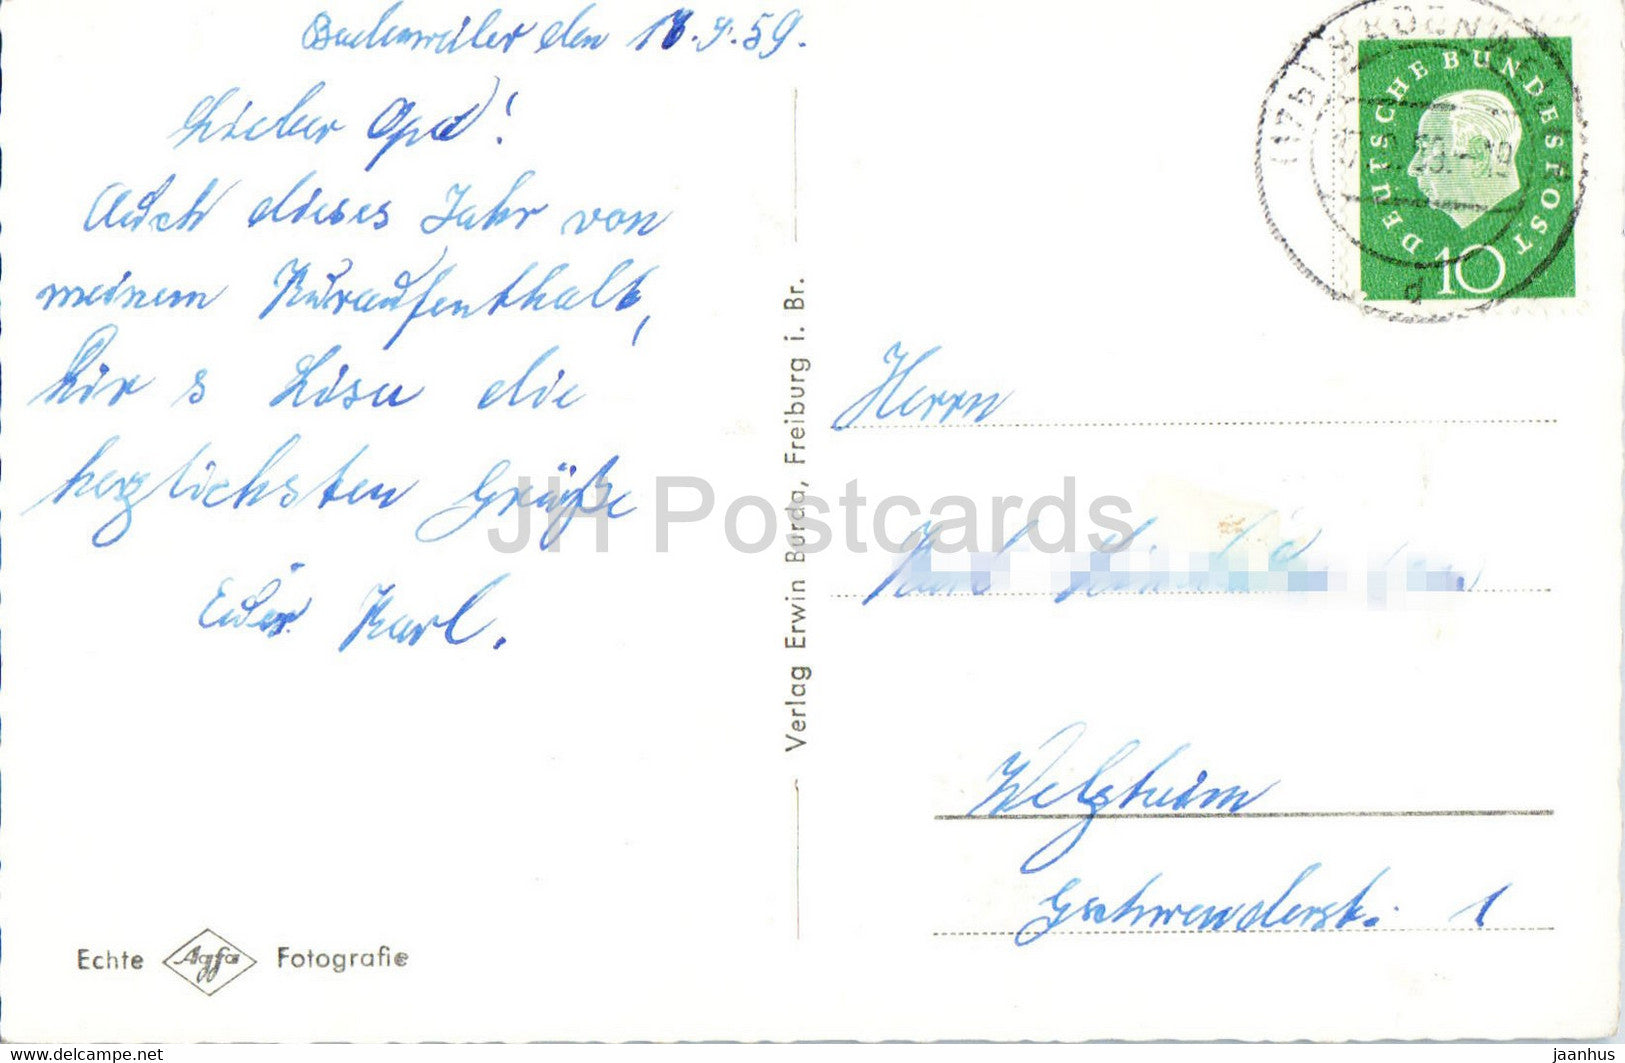 Badenweiler den 18.9.59.
Lieber Opa!
Auch dieses Jahr von
meinem Kuraufenthalt,
Dir s Lisu die
herzlichsten Grüße
Euer Karl.
Echte Agfa Fotografie
Verlag Erwin Burda, Freiburg i. Br.
(17b) BADENWEILER
59.-19
d
DEUTSCHE BUNDESPOST
10
Herrn
Welzheim
Gschwenderstr. 1
JH Postcards
www.delcampe.net
jaanhus